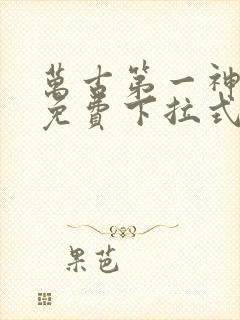 萬古第一神
免費下拉式
果芭